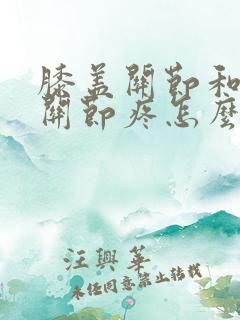 膝盖關節和
關節疼怎麽
汪興華
未经同意禁止转载